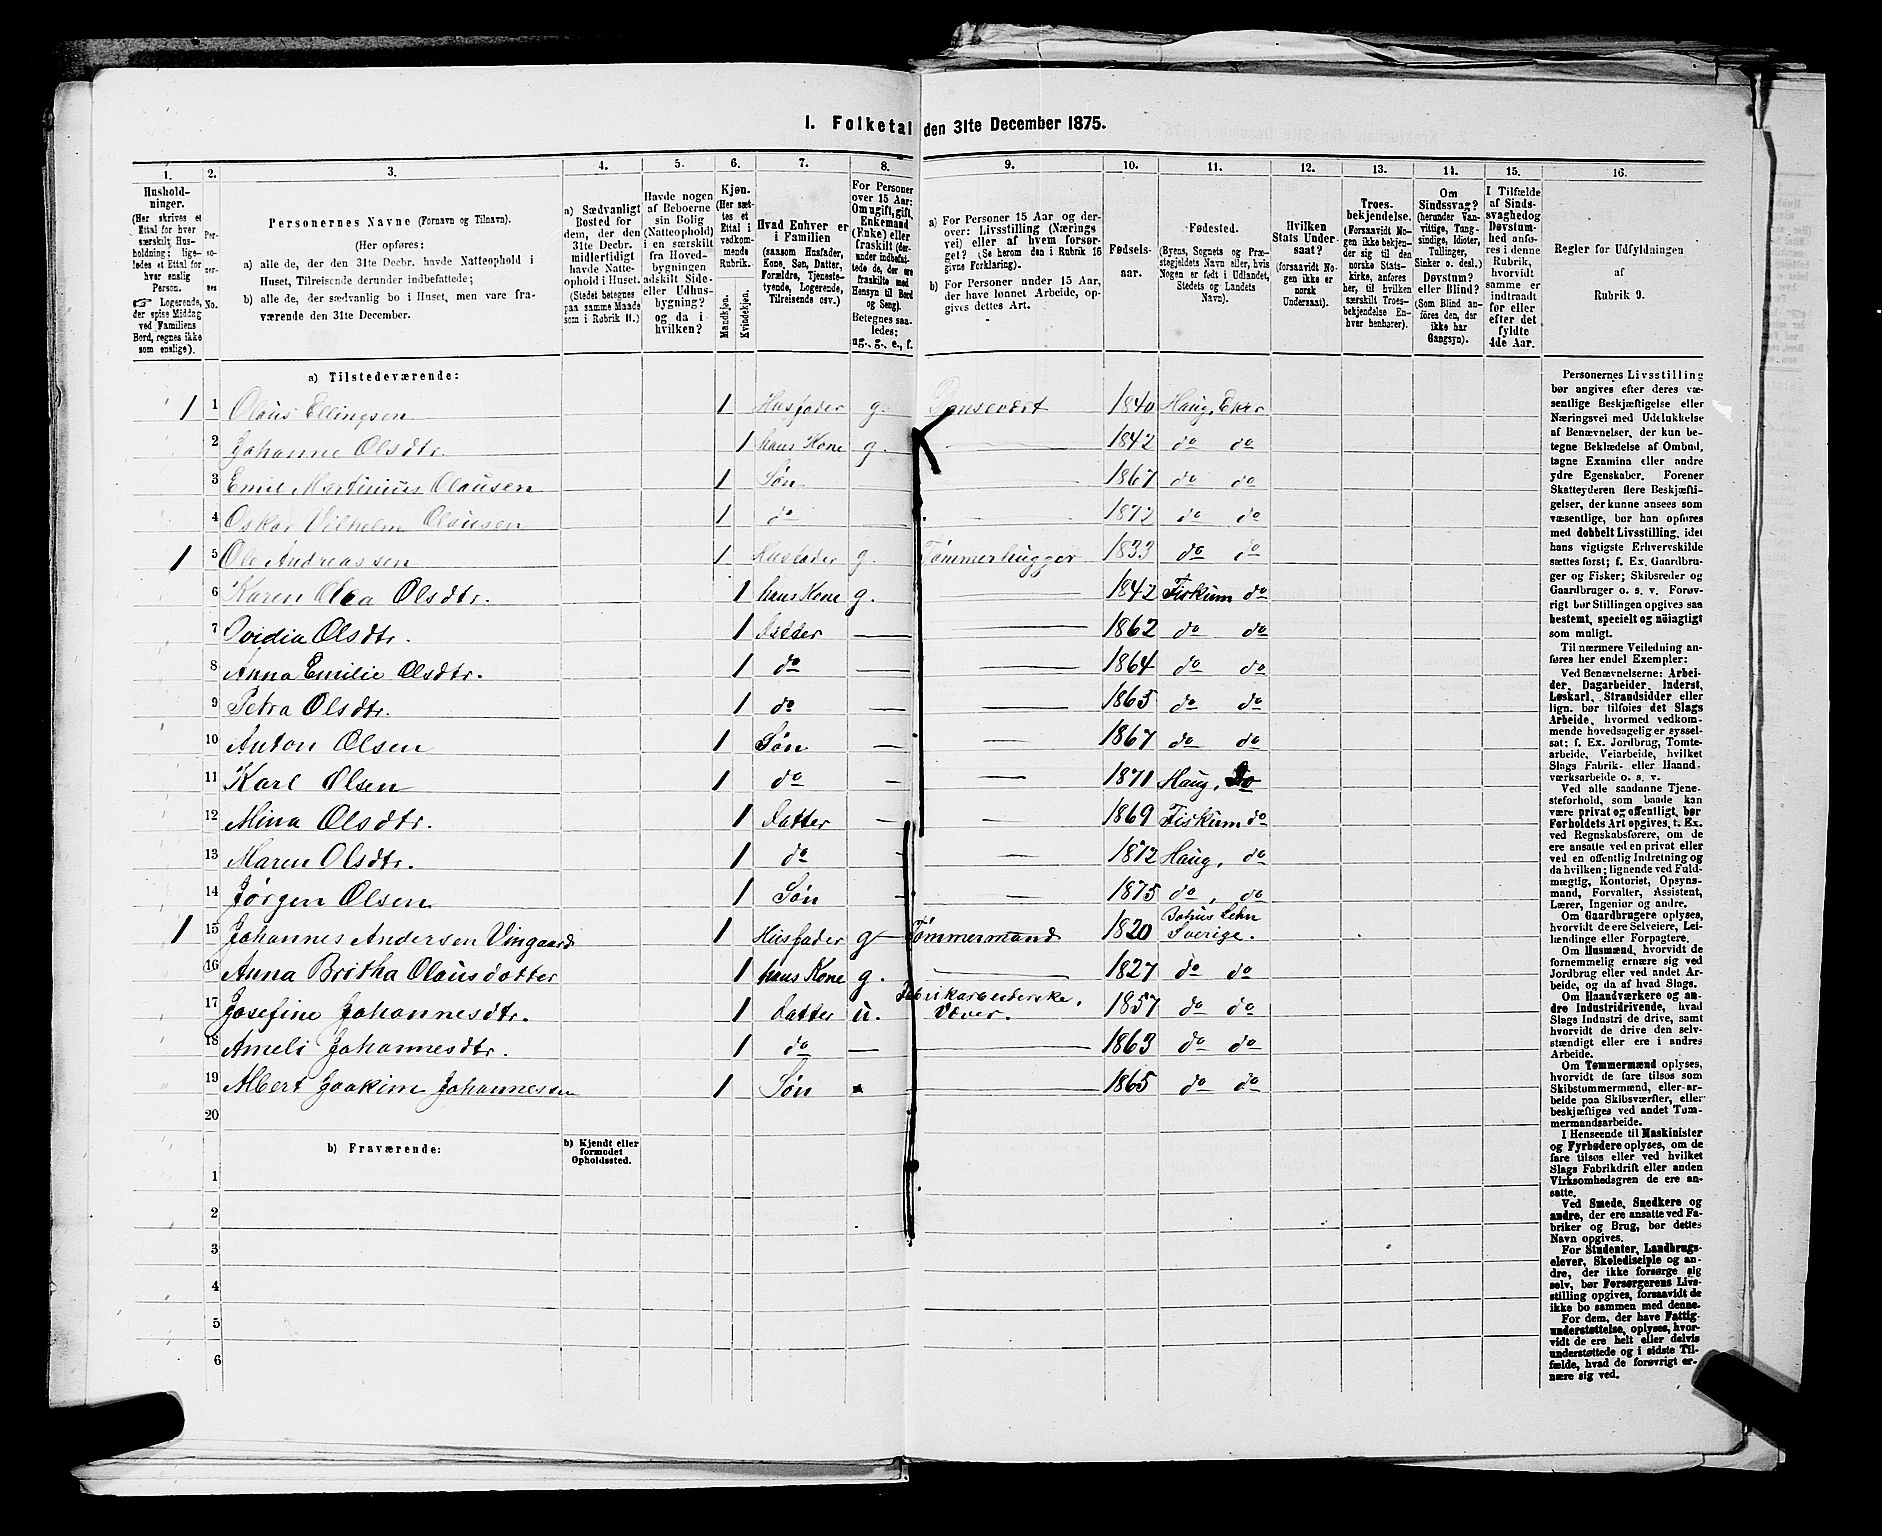 I. Folketal den 31te December 1875.
1. 2. 3. 4. 5. 6. 7. 8. 9. 10. 11. 12. 13. 14. 15. 16.
Husholdninger.
(Her skrives et Ettal for hver særskilt Husholdning; ligeledes et Ettal for enslig Person.
☞ Logerende, der spise Middag ved Familiens Bord, regnes ikke som enslige).
Personernes No.
Personernes Navne (Fornavn og Tilnavn).
(Her opføres:
a) alle de, der den 31te Decbr. havde Natteophold i Huset, Tilreisende derunder indbefattede;
b) alle de, der sædvanlig bo i Huset, men vare fraværende den 31te December.
a) Sædvanligt Bosted for dem, der den 31te Decbr. midlertidigt havde Natteophold i Huset. (Stedet betegnes paa samme Maade som i Rubrik 11.)
Havde nogen af Beboerne sin Bolig (Natteophold) i en særskilt fra Hovedbygningen adskilt Side- eller Udhusbygning? og da i hvilken?
Kjøn. (Her sættes et Ettal i vedkommende Rubrik.
Mandkjøn. Kvindekjøn.
Hvad Enhver er i Familien
(saasom Husfader, Kone, Søn, Datter, Forældre, Tjenestetyende, Logerende, Tilreisende osv.)
For Personer over 15 Aar: Om ugift, gift, Enkemand (Enke) eller fraskilt (derunder indbefattede de, der ere fraskilte med Hensyn til Bord og Seng). Betegnes saaledes: ug., g., e., f.
a) For Personer 15 Aar og derover: Livsstilling (Næringsvei) eller af hvem forsørget? (Se herom den i Rubrik 16 givne Forklaring).
b) For Personer under 15 Aar, der have lønnet Arbeide, opgives dettes Art.
Fødselsaar.
Fødested.
(Byens, Sognets og Præstegjeldets Navn eller, hvis Nogen er født i Udlandet, Stedets og Landets Navn).
Hvilken Stats Undersaat?
(forsaavidt Nogen ikke er norsk Undersaat).
Troesbekjendelse.
(Forsaavidt Nogen ikke bekjender sig til den norske Statskirke, anføres her, til hvilken særskilt Troesbekjendelse Enhver henhører).
Om Sindssvag? (herunder Vanvittige, Tungsindige, Idioter, Tullinger, Sinker o. desl.) Døvstum? eller Blind? (Som Blind anføres den, der ikke har Gangsyn).
I Tilfælde af Sindssvaghed og Døvstumhed anføres i denne Rubrik, hvorvidt samme er indtraadt før eller efter det fyldte 4de Aar.
Regler for Udfyldningen af Rubrik 9.
a) Tilstedeværende:
1 1 Olaus Ellingsen 1 Husfader g. 1840 Haug, Eker
2 Johanne Olsdtr. 1 hans Kone g. 1842 do do
3 Emil Martinius Olausen 1 Søn 1867 do do
4 Oskar Vilhelm Olausen 1 do 1872 do do
1 5 Ole Andreassen 1 Husfader g. Tømmerhugger 1833 do do
6 Karen Olea Olsdtr. 1 hans Kone g. 1842 Fiskum do
7 Ovidia Olsdtr. 1 Datter 1862 do do
8 Anna Emilie Olsdtr. 1 do 1864 do do
9 Petra Olsdtr. 1 do 1865 do do
10 Anton Olsen 1 Søn 1867 do do
11 Karl Olsen 1 do 1871 Haug, Do
12 Mina Olsdtr. 1 Datter 1869 Fiskum do
13 Maren Olsdtr. 1 do 1872 Haug, do
14 Jørgen Olsen 1 Søn 1875 do, do
1 15 Johannes Andersen Vingaard 1 Husfader g Tømmermand 1820 Bohus Lehn Sverige.
16 Anna Britha Olausdatter 1 hans Kone g. 1827 do do
17 Josefine Johannesdtr. 1 Datter u. Fabrikarbeiderske, Væver. 1857 do do
18 Ameli Johannesdtr. 1 do 1863 do do
19 Albert Joakim Johannessen 1 Søn 1865 do do
20
b) Fraværende: b) Kjendt eller formodet Opholdssted.
1
2
3
4
5
6
Personernes Livsstilling
bør angives efter deres væ-
sentlige Beskjæftigelse eller
Næringsvei med Udelukkelse
af Benævnelser, der kun be-
tegne Beklædelse af Ombud,
tagne Examina eller andre
ydre Egenskaber. Forener
Skatteyderen flere Beskjæfti-
gelser, der kunne ansees som
væsentlige, bør han opføres
med dobbelt Livsstilling, idet
hans vigtigste Erhvervskilde
sættes først; f. Ex. Gaardbru-
ger og Fisker; Skibsreder og
Gaardbruger o. s. v. Forøv-
rigt bør Stillingen opgives saa
bestemt, specielt og nöiagtigt
som muligt.
Til nærmere Veiledning an-
føres her endel Exempler:
Ved Benævnelserne: Arbei-
der, Dagarbeider, Inderst,
Løskarl, Strandsidder eller
lign. bør tilføies det Slags
Arbeide, hvormed vedkom-
mende hovedsagelig er syssel-
sat; f. Ex. Jordbrug, Tomte-
arbeide, Veiarbeide, hvilket
Slags Fabrik- eller Haand-
værksarbeide o. s. v.
Ved alle saadanne Tjene-
steforhold, som baade kan
være privat og offentligt, bør
Forholdets Art opgives, t. Ex.
ved Regnskabsførere, om de
ere ansatte ved en privat eller
ved en offentlig Indretning og
da hvilken; lignende ved Fuld-
mægtig, Kontorist, Opsyns-
mand, Forvalter, Assistent,
Lærer, Ingeniør og andre.
Om Gaardbrugere oplyses,
hvorvidt de ere Selveiere, Lei-
lændinge eller Forpagtere.
Om Husmænd, hvorvidt de
fornemmelig ernære sig ved
Jordbrug eller ved andet Ar-
beide, og da af hvad Slags.
Om Haandværkere og an-
dre Industridrivende, hvad
Slags Industri de drive, samt
hvorvidt de drive den selv-
stændigt eller ere i andres
Arbeide.
Om Tømmermænd oplyses,
hvorvidt de fare tilsøs som
Skibstømmermænd, eller ar-
beide paa Skibsværfter, eller
beskjæftiges ved andet Tøm-
mermandsarbeide.
I Henseende til Maskinister
og Fyrbødere oplyses, om de
fare tilsøs eller ved hvilket
Slags Fabrikdrift eller anden
Virksomhedsgren de ere an-
satte.
Ved Smede, Snedkere og
andre, der ere ansatte ved Fa-
briker og Brug, bør dettes
Navn opgives.
For Studenter, Landbrugs-
elever, Skoledisciple og an-
dre, der ikke forsørge sig
selv, bør Forsørgerens Livs-
stilling opgives, forsaavidt de
ikke bo sammen med denne.
For dem, der have Fattig-
understøttelse, oplyses, hvor-
vidt de ere helt eller delvis
understøttede og i sidste Til-
fælde, hvad de forøvrigt er-
nære sig ved.